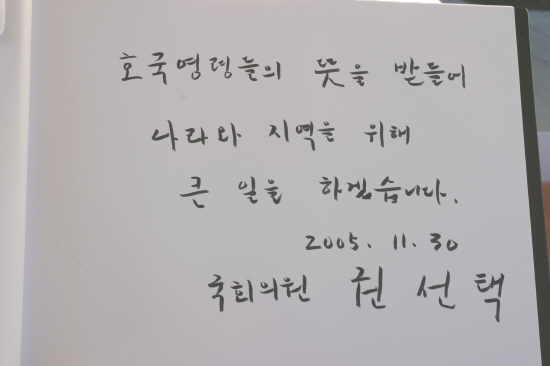 호국영령들의 뜻을 받들어
나라와 지역을 위해
큰 일을 하겠습니다.
2005. 11. 30
국회의원 권선택